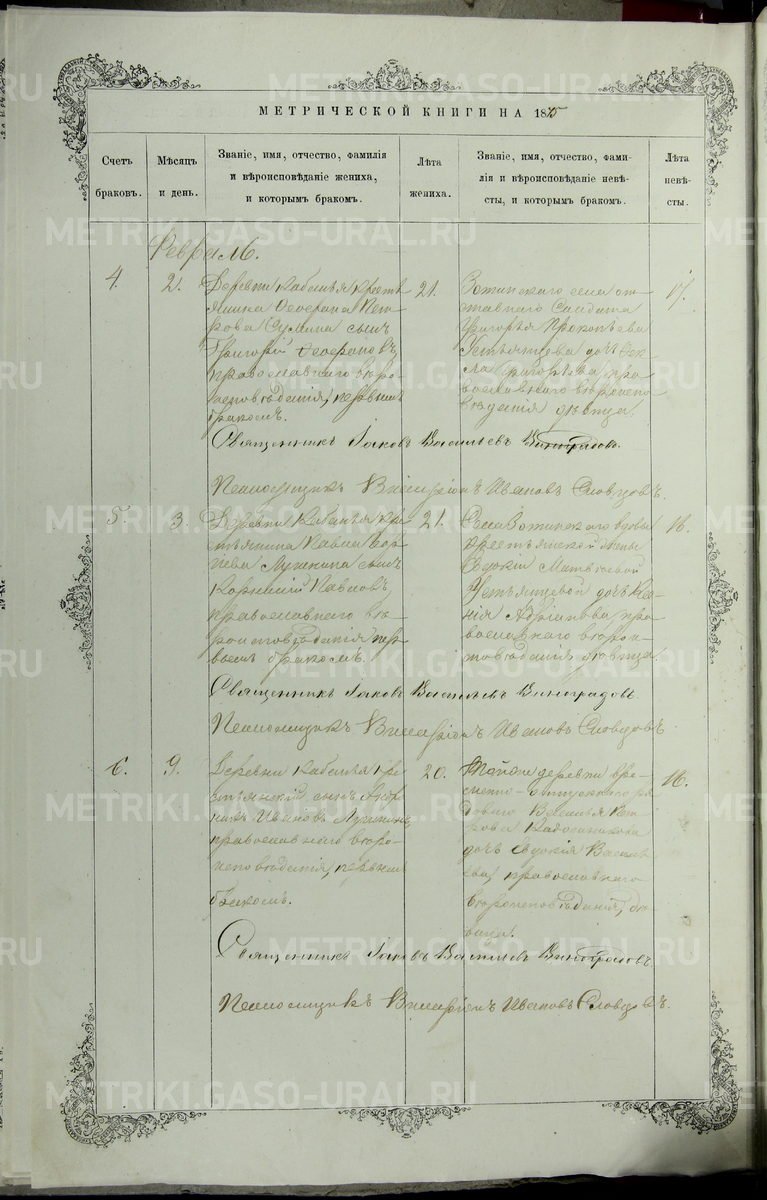 МЕТРИЧЕСКОЙ КНИГИ НА 1875
Счетъ браковъ.
Мѣсяцъ и день.
Званіе, имя, отчество, фамилія
и вѣроисповѣданіе жениха,
и которымъ бракомъ.
Лѣта жениха.
Званіе, имя, отчество, фами-
лія и вѣроисповѣданіе невѣ-
сты, и которымъ бракомъ.
Лѣта невѣ-
сты.
Февраль.
4.
2.
Деревни Кабанья кресть
янина
Петрова сынъ
Григорій
православнаго вѣро-
исповѣданія, первымъ
бракомъ.
21.
села от-
ставнаго Солдата
Григорья Прокопьева
Устьянцова дочь Ѳек-
ла Григорьева пра-
вославнаго вѣроиспо-
вѣданія дѣвица.
17.
Священникъ Іаковъ Васильевъ Виноградовъ.
Псаломщикъ Виссаріонъ Ивановъ Словцовъ.
5
3.
Деревни Кабанья кре-
стьянина Павла
сынъ
Корнилій Павловъ,
православнаго вѣ-
роисповѣданія пер-
вымъ бракомъ.
21.
Села вдовы
крестьянской жены
Евдокіи Матвѣевой
Устьянцевой дочь Ксе-
нія Адріанова, пра-
вославнаго вѣроис-
повѣданія, дѣвица
18.
Священникъ Іаковъ Васильевъ Виноградовъ.
Псаломщикъ Виссаріонъ Ивановъ Словцовъ
6.
9.
Деревни Кабанья кре-
стьянскій сынъ
Ивановъ
православнаго вѣро-
исповѣданія, первымъ
бракомъ.
20.
Той же деревни вре-
менно-отпускнаго ря-
доваго Василья Пет-
рова
дочь Евдокія Василь
ева, православнаго
вѣроисповѣданія, дѣ-
вица.
16.
Священникъ Іаковъ Васильевъ Виноградовъ
Псаломщикъ Виссаріонъ Ивановъ Словцовъ.
METRIKI.GASO-URAL.RU